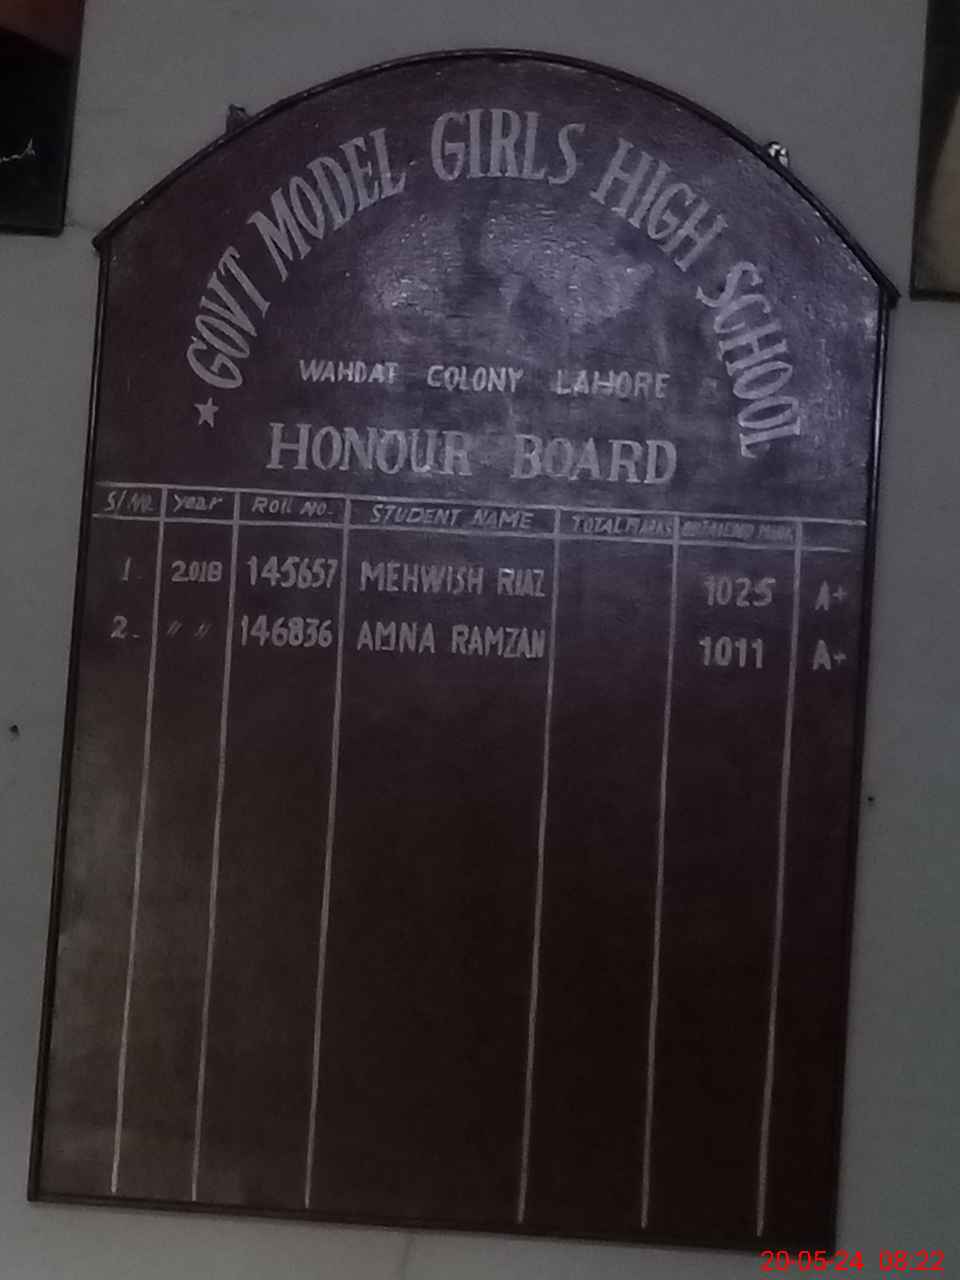 GOVT MODEL GIRLS HIGH SCHOOL
WAHDAT COLONY LAHORE
HONOUR BOARD
S/No. Year ROLL NO. STUDENT NAME TOTAL MARKS
1. 2018 145657 MEHWISH RIAZ 1025 A+
2. " " 146836 AMNA RAMZAN 1011 A+
20-05-24 08:22